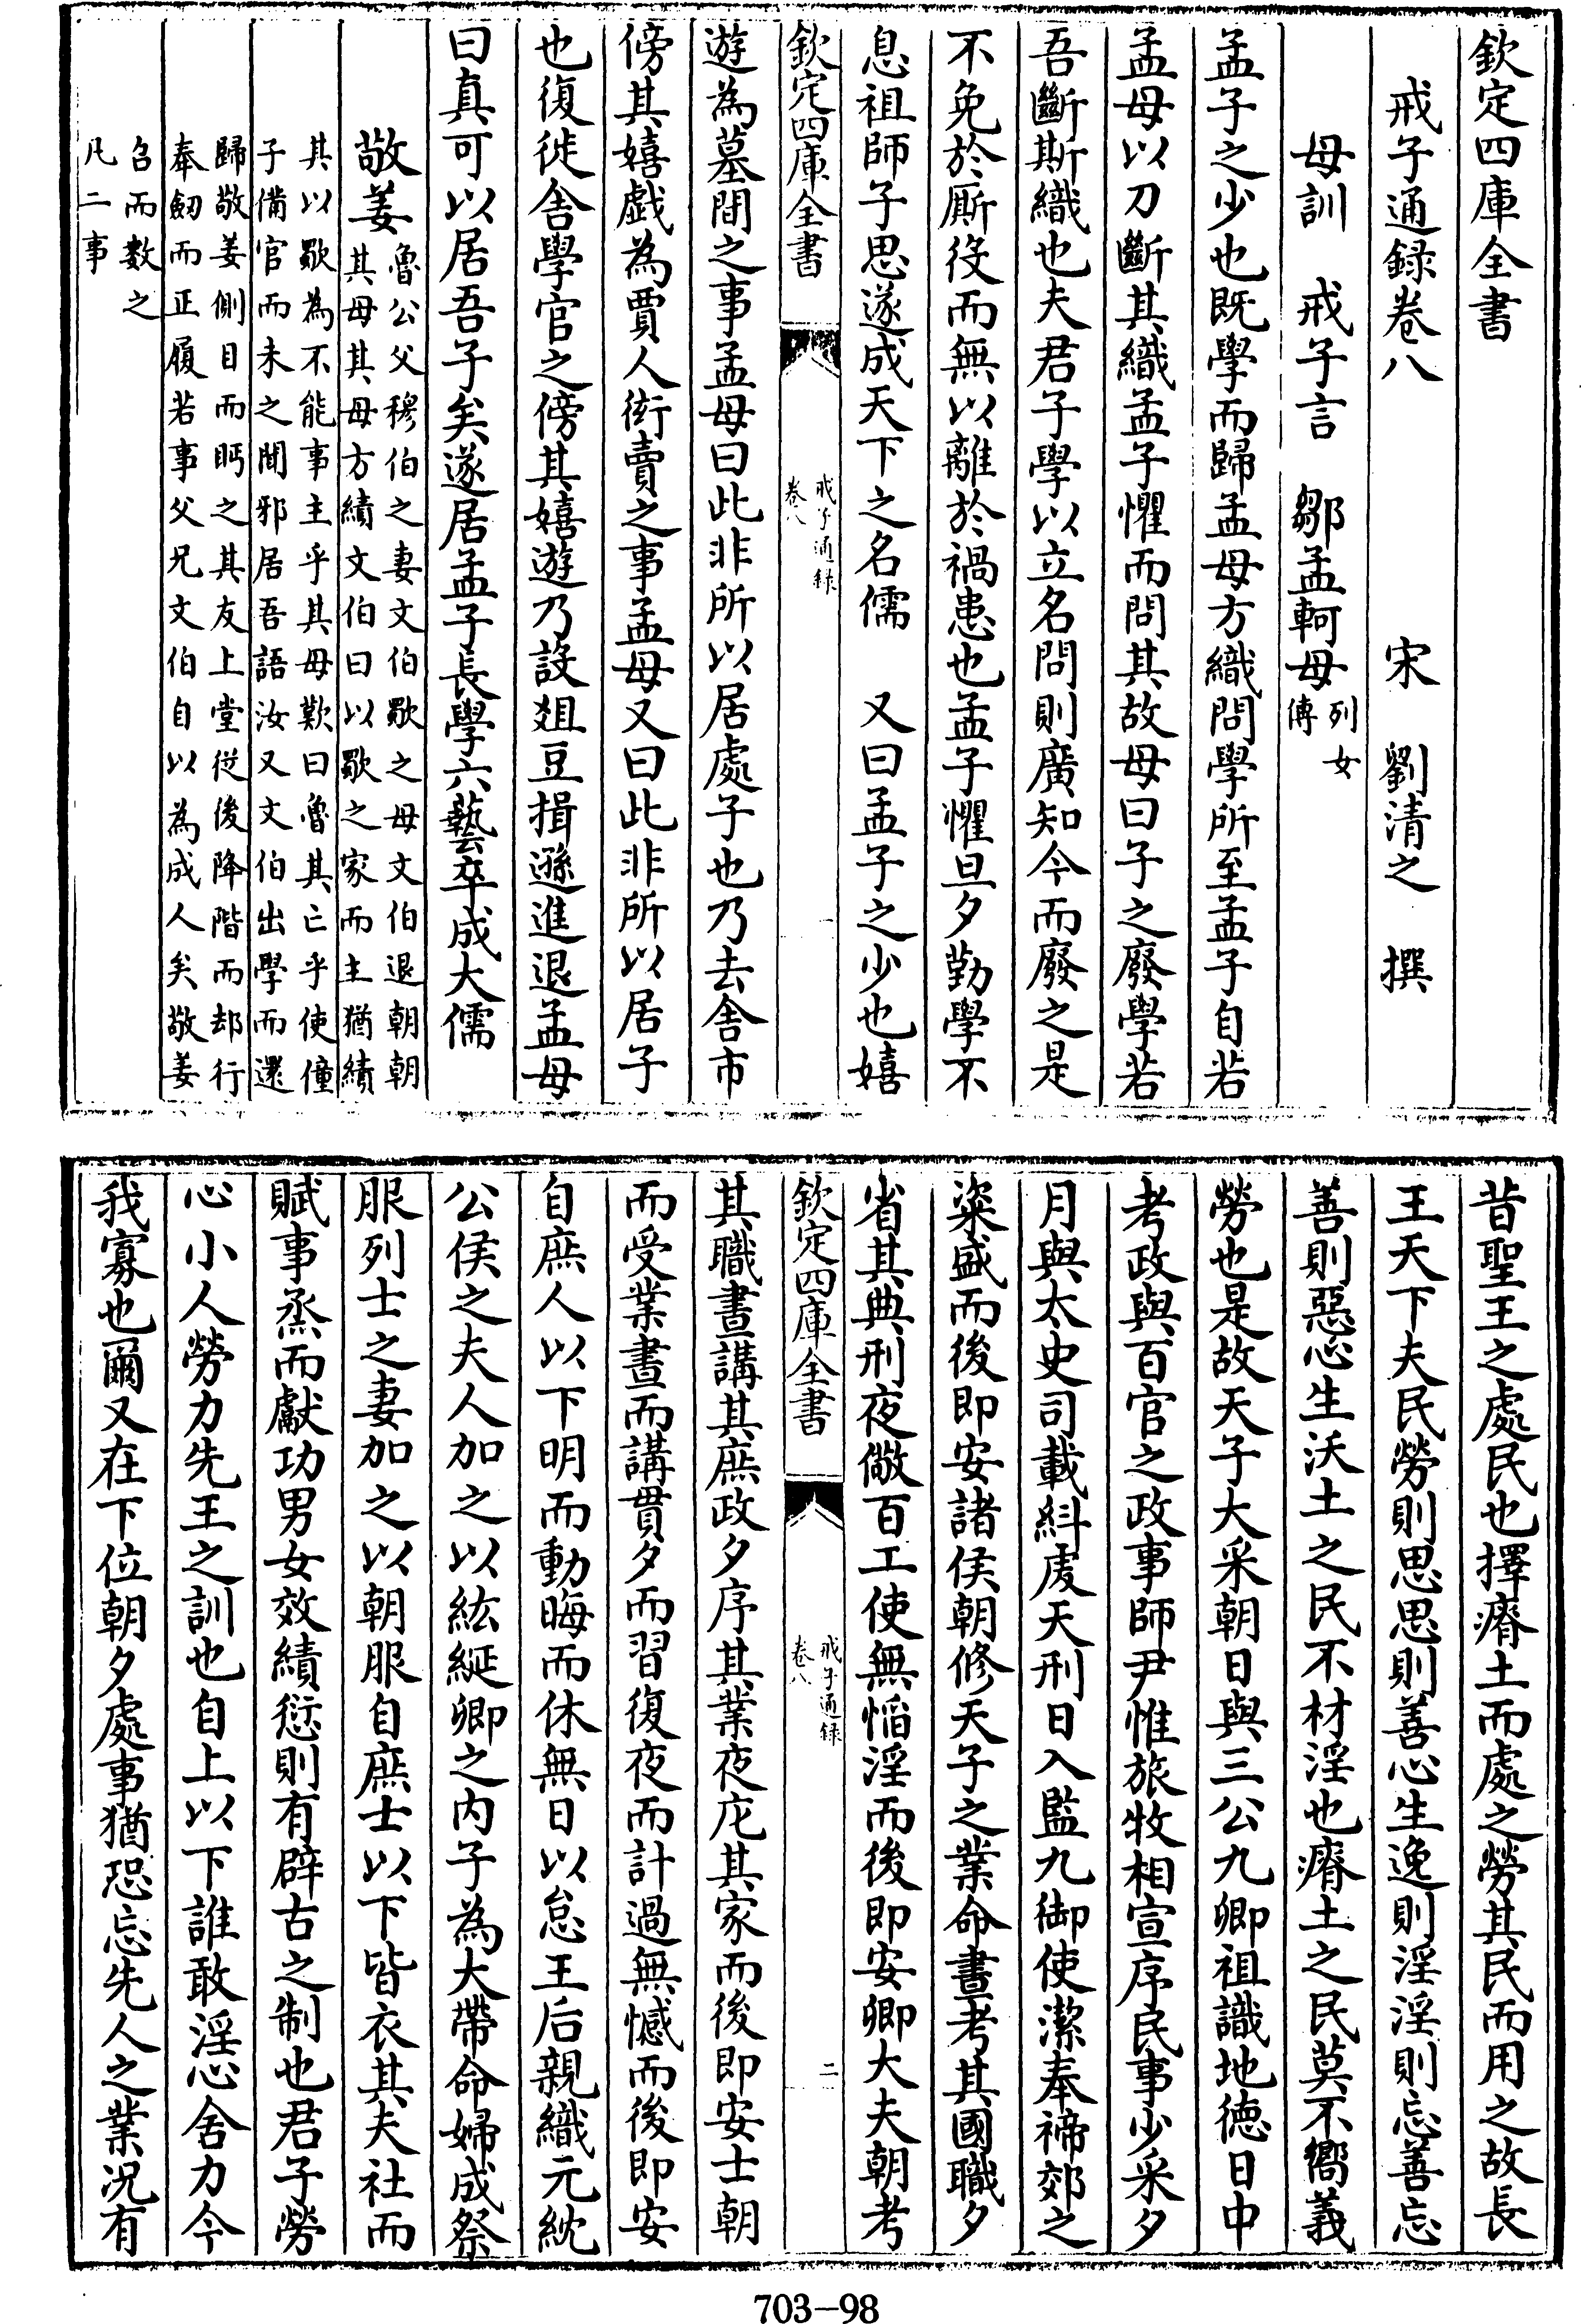 欽定四庫全書
戒子通録卷八
宋 劉清之 撰
母訓 戒子言 鄒孟軻母列女傳
孟子之少也既學而歸孟母方織問學所至孟子自若
孟母以刀斷其織孟子懼而問其故母曰子之廢學若
吾斷斯織也夫君子學以立名問則廣知今而廢之是
不免於厮役而無以離於禍患也孟子懼旦夕勤學不
息祖師子思遂成天下之名儒 又曰孟子之少也嬉
欽定四庫全書
戒子通録
卷八
一
遊為墓間之事孟母曰此非所以居處子也乃去舎市
傍其嬉戯為賈人衒賣之事孟母又曰此非所以居子
也復徙舎學官之傍其嬉遊乃設爼豆揖遜進退孟母
曰真可以居吾子矣遂居孟子長學六藝卒成大儒
敬姜魯公父穆伯之妻文伯歜之母文伯退朝朝
其母其母方績文伯曰以歜之家而主猶績
其以歜為不能事主乎其母歎曰魯其亡乎使僮
子備官而未之聞邪居吾語汝又文伯出學而還
歸敬姜側目而眄之其友上堂従後降階而却行
奉劒而正履若事父兄文伯自以為成人矣敬姜
召而數之
凡二事
昔聖王之處民也擇瘠土而處之勞其民而用之故長
王天下夫民勞則思思則善心生逸則淫淫則忘善忘
善則惡心生沃土之民不材淫也瘠土之民莫不嚮義
勞也是故天子大采朝日與三公九卿祖識地徳日中
考政與百官之政事師尹惟旅牧相宣序民事少采夕
月與太史司載糾䖍天刑日入監九御使潔奉禘郊之
粢盛而後即安諸侯朝修天子之業命晝考其國職夕
省其典刑夜儆百工使無慆淫而後即安卿大夫朝考
欽定四庫全書
戒子通録
卷八
二
其職晝講其庶政夕序其業夜庀其家而後即安士朝
而受業晝而講貫夕而習復夜而計過無憾而後即安
自庶人以下明而動晦而休無日以怠王后親織元紞
公侯之夫人加之以紘綖卿之内子為大帶命婦成祭
服列士之妻加之以朝服自庶士以下皆衣其夫社而
賦事烝而獻功男女效績愆則有辟古之制也君子勞
心小人勞力先王之訓也自上以下誰敢淫心舎力今
我寡也爾又在下位朝夕處事猶恐忘先人之業况有
703-98